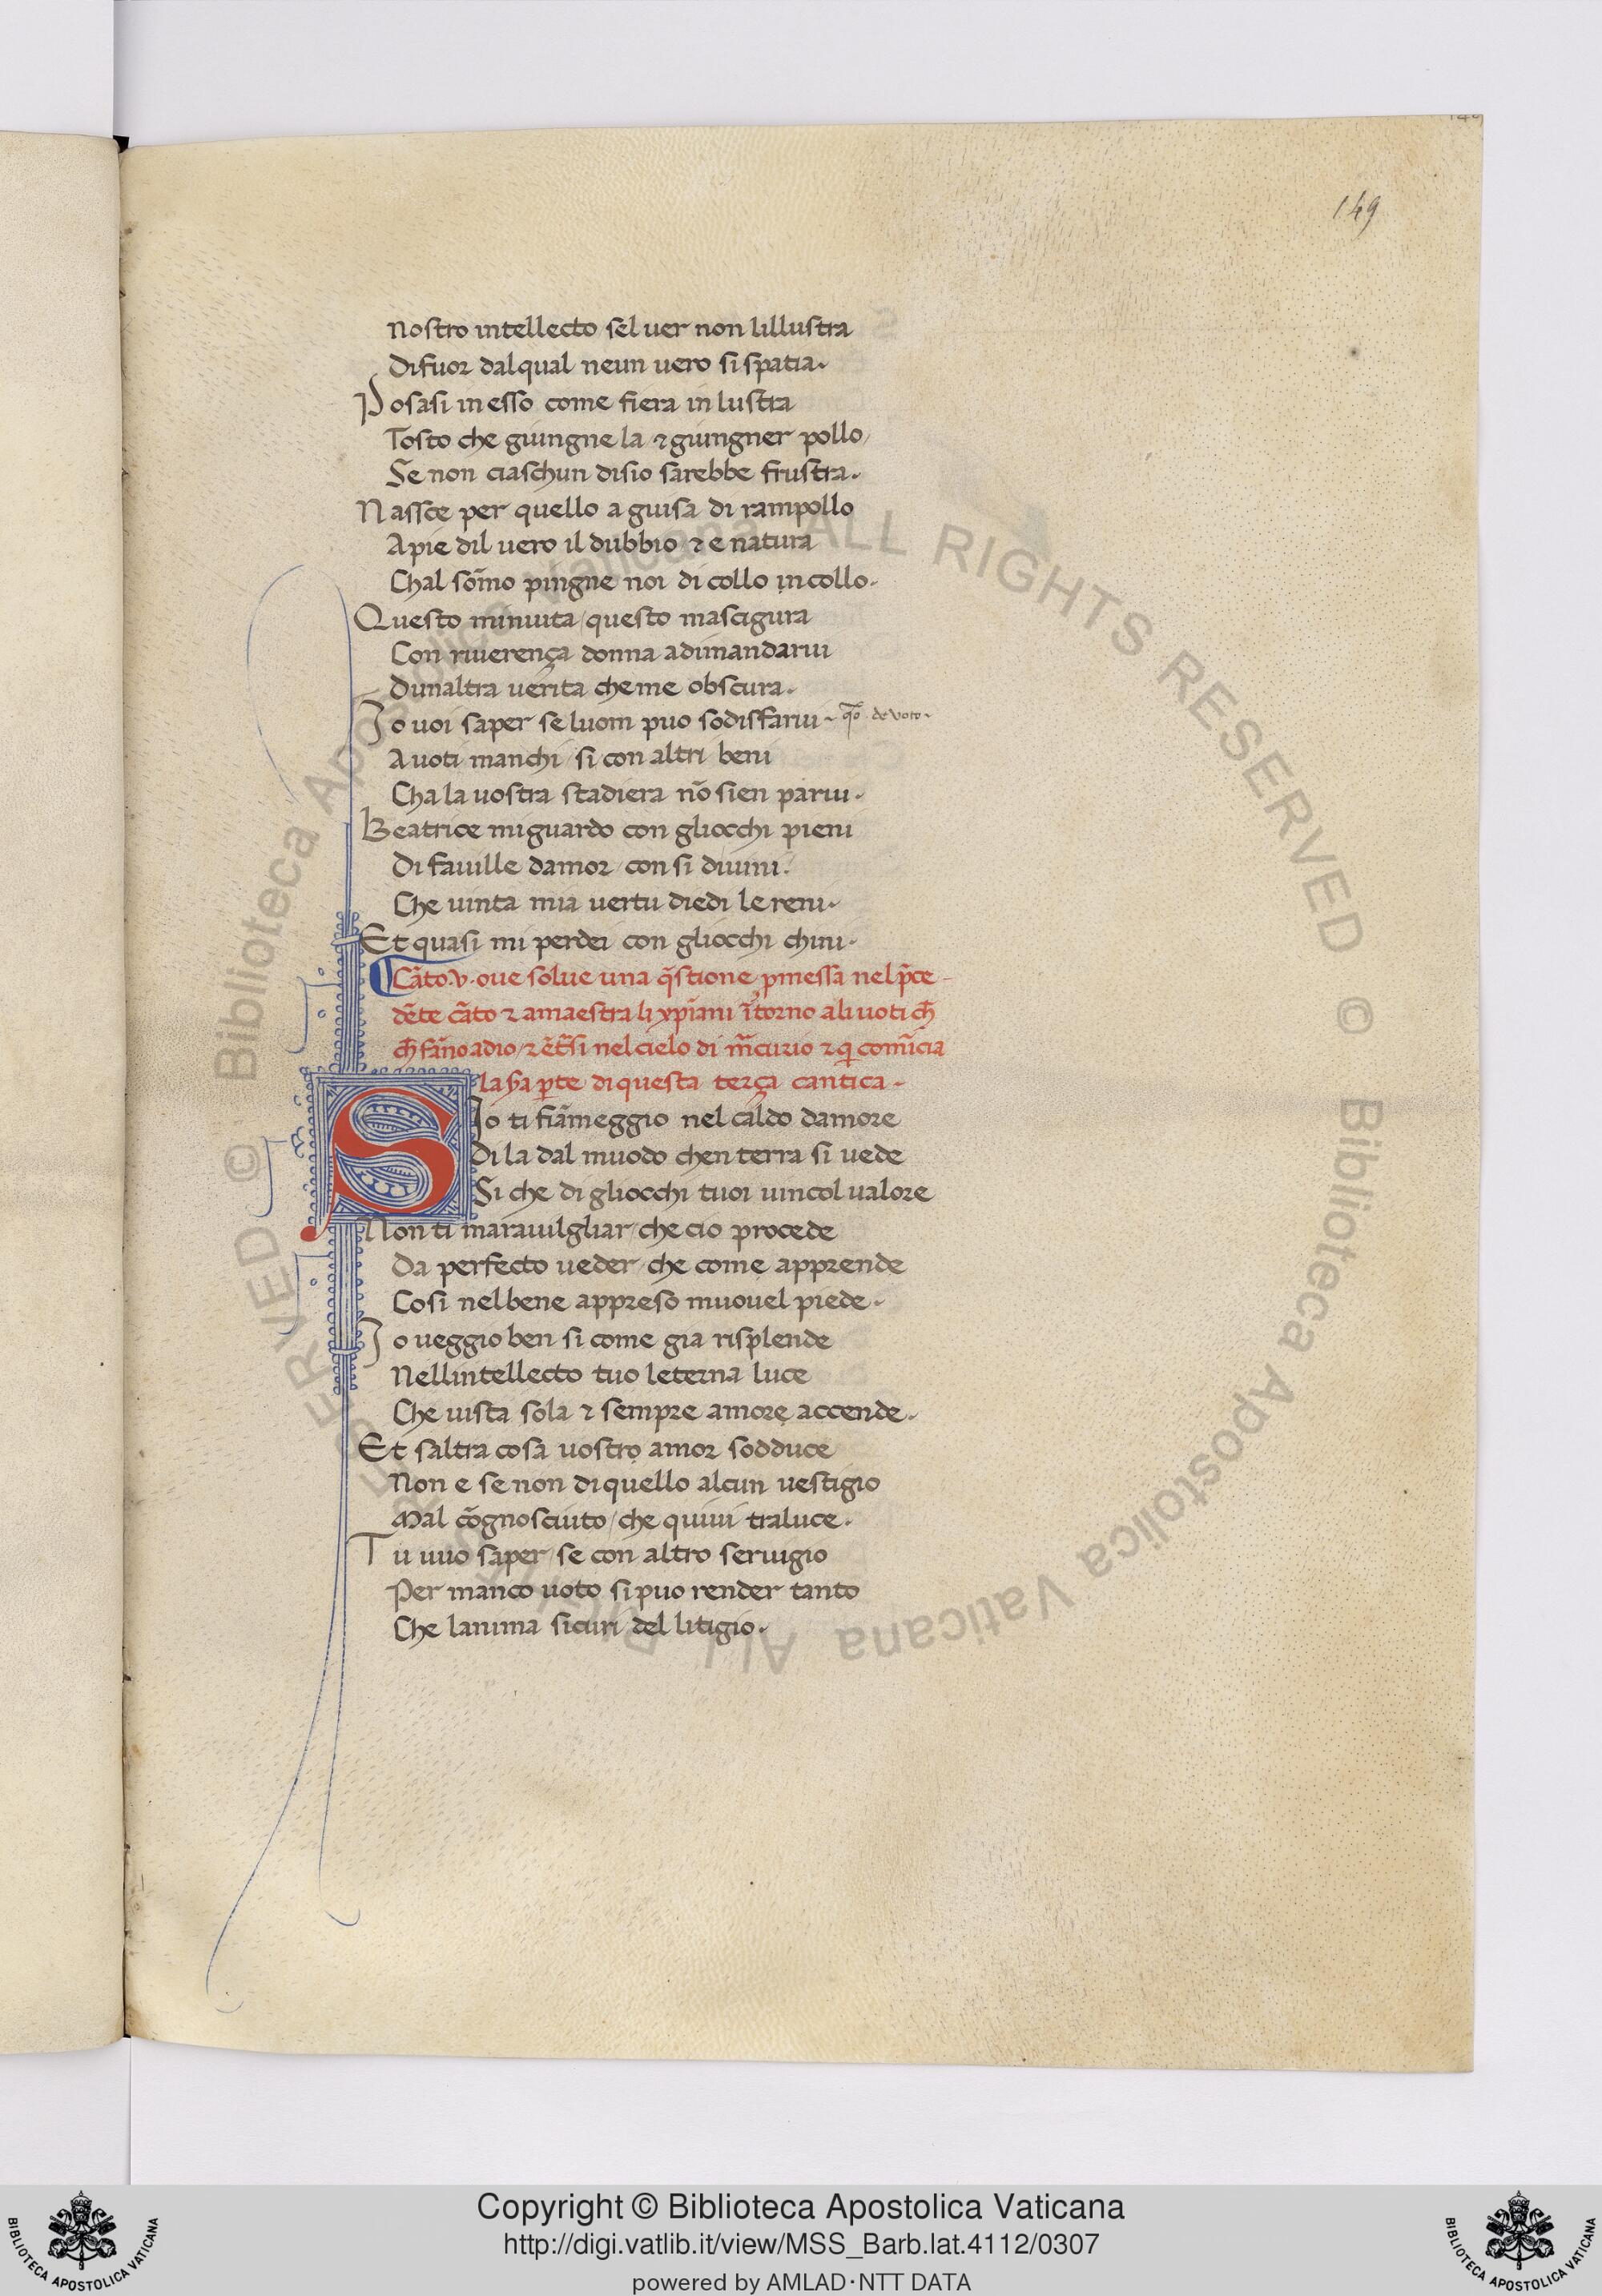 149
Nostro intellecto sel uer non lillustra
Di fuor dal qual neun uero si spatia.
Posasi in esso come fiera in lustra
Tosto che giungne la ⁊ giungner pollo/
Se non ciaschun disio sarebbe frustra.
Nassce per quello a guisa di rampollo
A pie dil uero il dubbio ⁊ e natura
Chal som̄o pingne noi di collo in collo.
Questo minuita/questo mascigura
Con riuerença donna a dimandarui
Dunaltra uerita che me obscura.
Io uoi saper se luom puo sodisfarui. qō de voto.
A uoti manchi/si con altri beni
Cha la uostra stadiera nō sien parui.
Beatrice mi guardo con gliocchi pieni
Di fauille damor/con si diuini.
Che uinta mia uertu diedi le reni.
Et quasi mi perdei con gliocchi chini.
Cāto.v. oue solue una q̄stione pmessa nel p̄ce-
dēte cāto ⁊ amaestra li xp̄iani ītorno ali uoti ch̄
ch̄ fāno adio/⁊ ē t̄si nel cielo di m̄curio ⁊ q̄ comīcia
la ẜa pte di questa terça cantica.
SIo ti fiāmeggio nel caldo damore
Di la dal muodo chen terra si uede
Si che di gliocchi tuoi uincol ualore
Non ti marauilgliar/che cio procede
Da perfecto ueder/che come apprende
Cosi nel bene appreso muouel piede.
Io ueggio ben si come gia risplende
Nellintellecto tuo leterna luce
Che uista sola ⁊ sempre amore accende.
Et saltra cosa uostro amor sodduce
Non e se non di quello alcun uestigio
Mal cōgnosciuto/che quiui traluce.
Tu uuo saper/se con altro seruigio
Per manco uoto si puo render tanto
Che lanima sicuri del litigio.
© Biblioteca Apostolica Vaticana ALL RIGHTS RESERVED © Biblioteca Apostolica Vaticana ALL RIGHTS RESERVED
Copyright © Biblioteca Apostolica Vaticana
http://digi.vatlib.it/view/MSS_Barb.lat.4112/0307
powered by AMLAD·NTT DATA
BIBLIOTECA APOSTOLICA VATICANA
BIBLIOTECA APOSTOLICA VATICANA